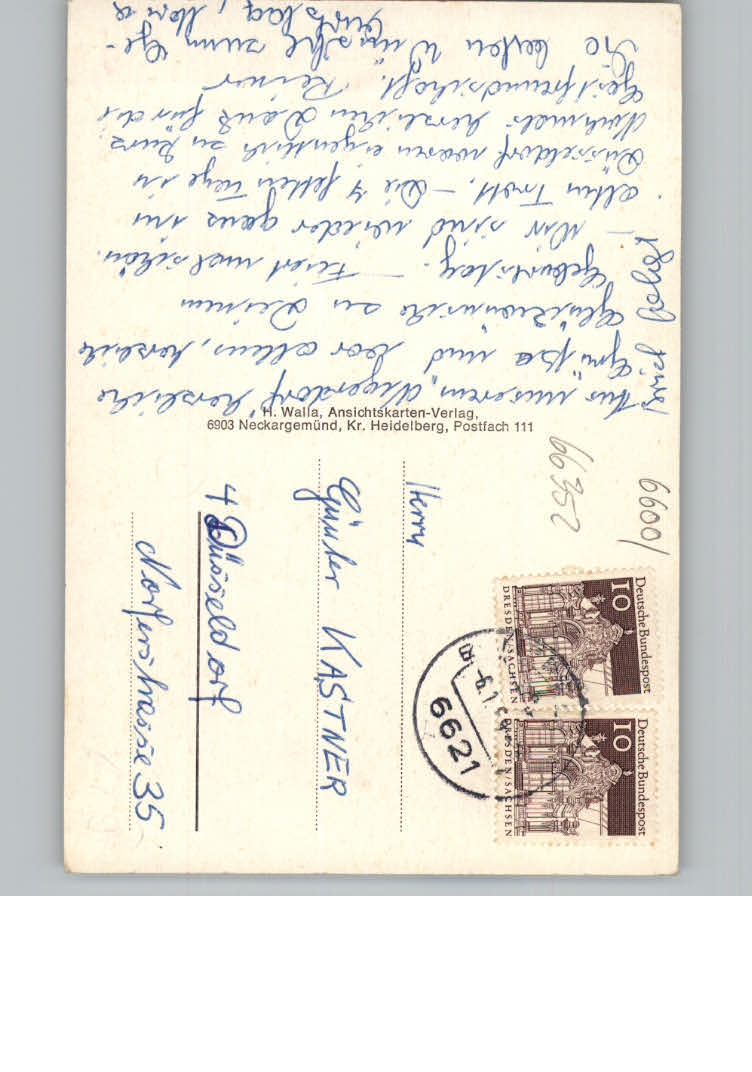 Aus unserem "Negerdorf" herzliche
Grüße und vor allem, herzliche
Glückwünsche zu Deinem
Geburtstag. – Feiert mal schön.
– Wir sind wieder ganz im
alten Trott. – Die 4 fetten Tage in
Düsseldorf waren eigentlich zu kurz
Nochmals herzlichen Dank für die
Gastfreundschaft.
Die besten Wünsche zum Ge-
burtstag,
H. Walla, Ansichtskarten-Verlag,
6903 Neckargemünd, Kr. Heidelberg, Postfach 111
Herrn
Günter KASTNER
4 Düsseldorf
35
66352
6600/
Deutsche Bundespost
10
DRESDEN/SACHSEN
Deutsche Bundespost
10
DRESDEN/SACHSEN
6621